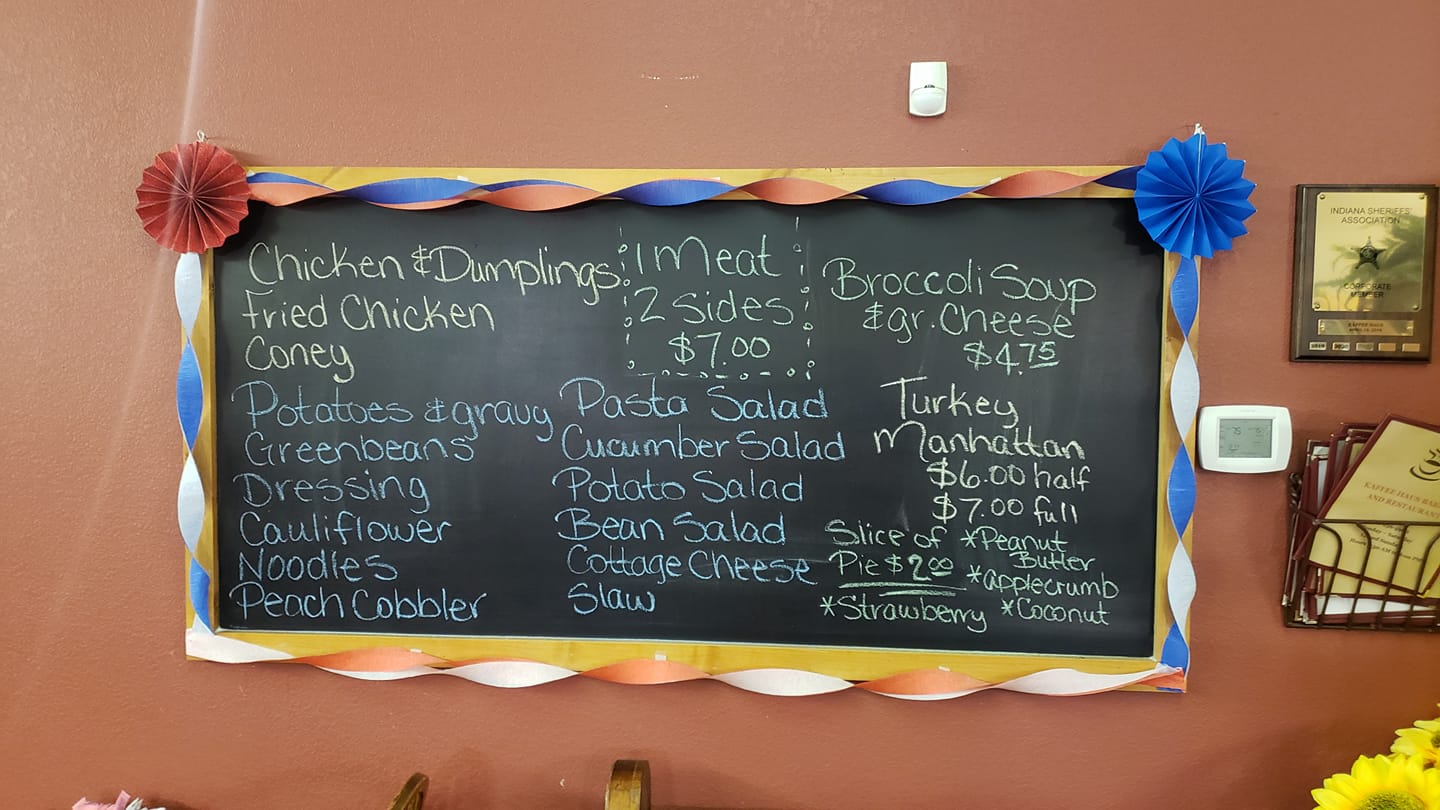 Chicken & Dumplings
Fried Chicken
Coney
1 Meat
2 sides
$7.00
Potatoes & gravy
Greenbeans
Dressing
Cauliflower
Noodles
Peach Cobbler
Pasta Salad
Cucumber Salad
Potato Salad
Bean Salad
Cottage Cheese
Slaw
Broccoli Soup
& gr. Cheese
$4.75
Turkey
Manhattan
$6.00 half
$7.00 full
Slice of
Pie $2.00
*Peanut
Butler
*applecrumb
*Strawberry *Coconut
INDIANA SHERIFFS'
ASSOCIATION
CORPORATE
MEMBER
KAFFEE HAUS
75
KAFFEE HAUS
AND RESTAURANT